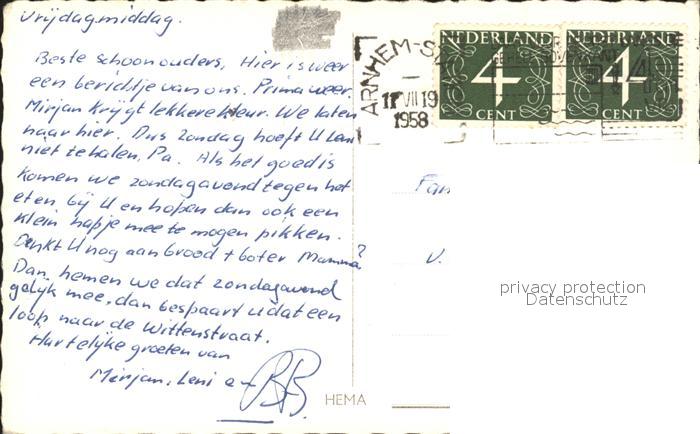 Vrijdagmiddag.
Beste schoonouders, Hier is weer
een berichtje van ons. Prima weer.
Mirjan krijgt lekkere kleur. We laten
haar hier. Dus zondag hoeft U Leni
niet te halen, Pa. Als het goed is
komen we zondagavond tegen het
eten bij U en hopen dan ook een
klein hapje mee te mogen pikken.
Denkt U nog aan brood + boter Mamma?
Dan nemen we dat zondagavond
gelijk mee, dan bespaart U dat een
loop naar de Wittenstraat.
Hartelijke groeten van
Mirjan, Leni en
HEMA
NEDERLAND
4
CENT
NEDERLAND
4
CENT
ARNHEM-S
17 VII 19
1958
Fam
v.
privacy protection
Datenschutz